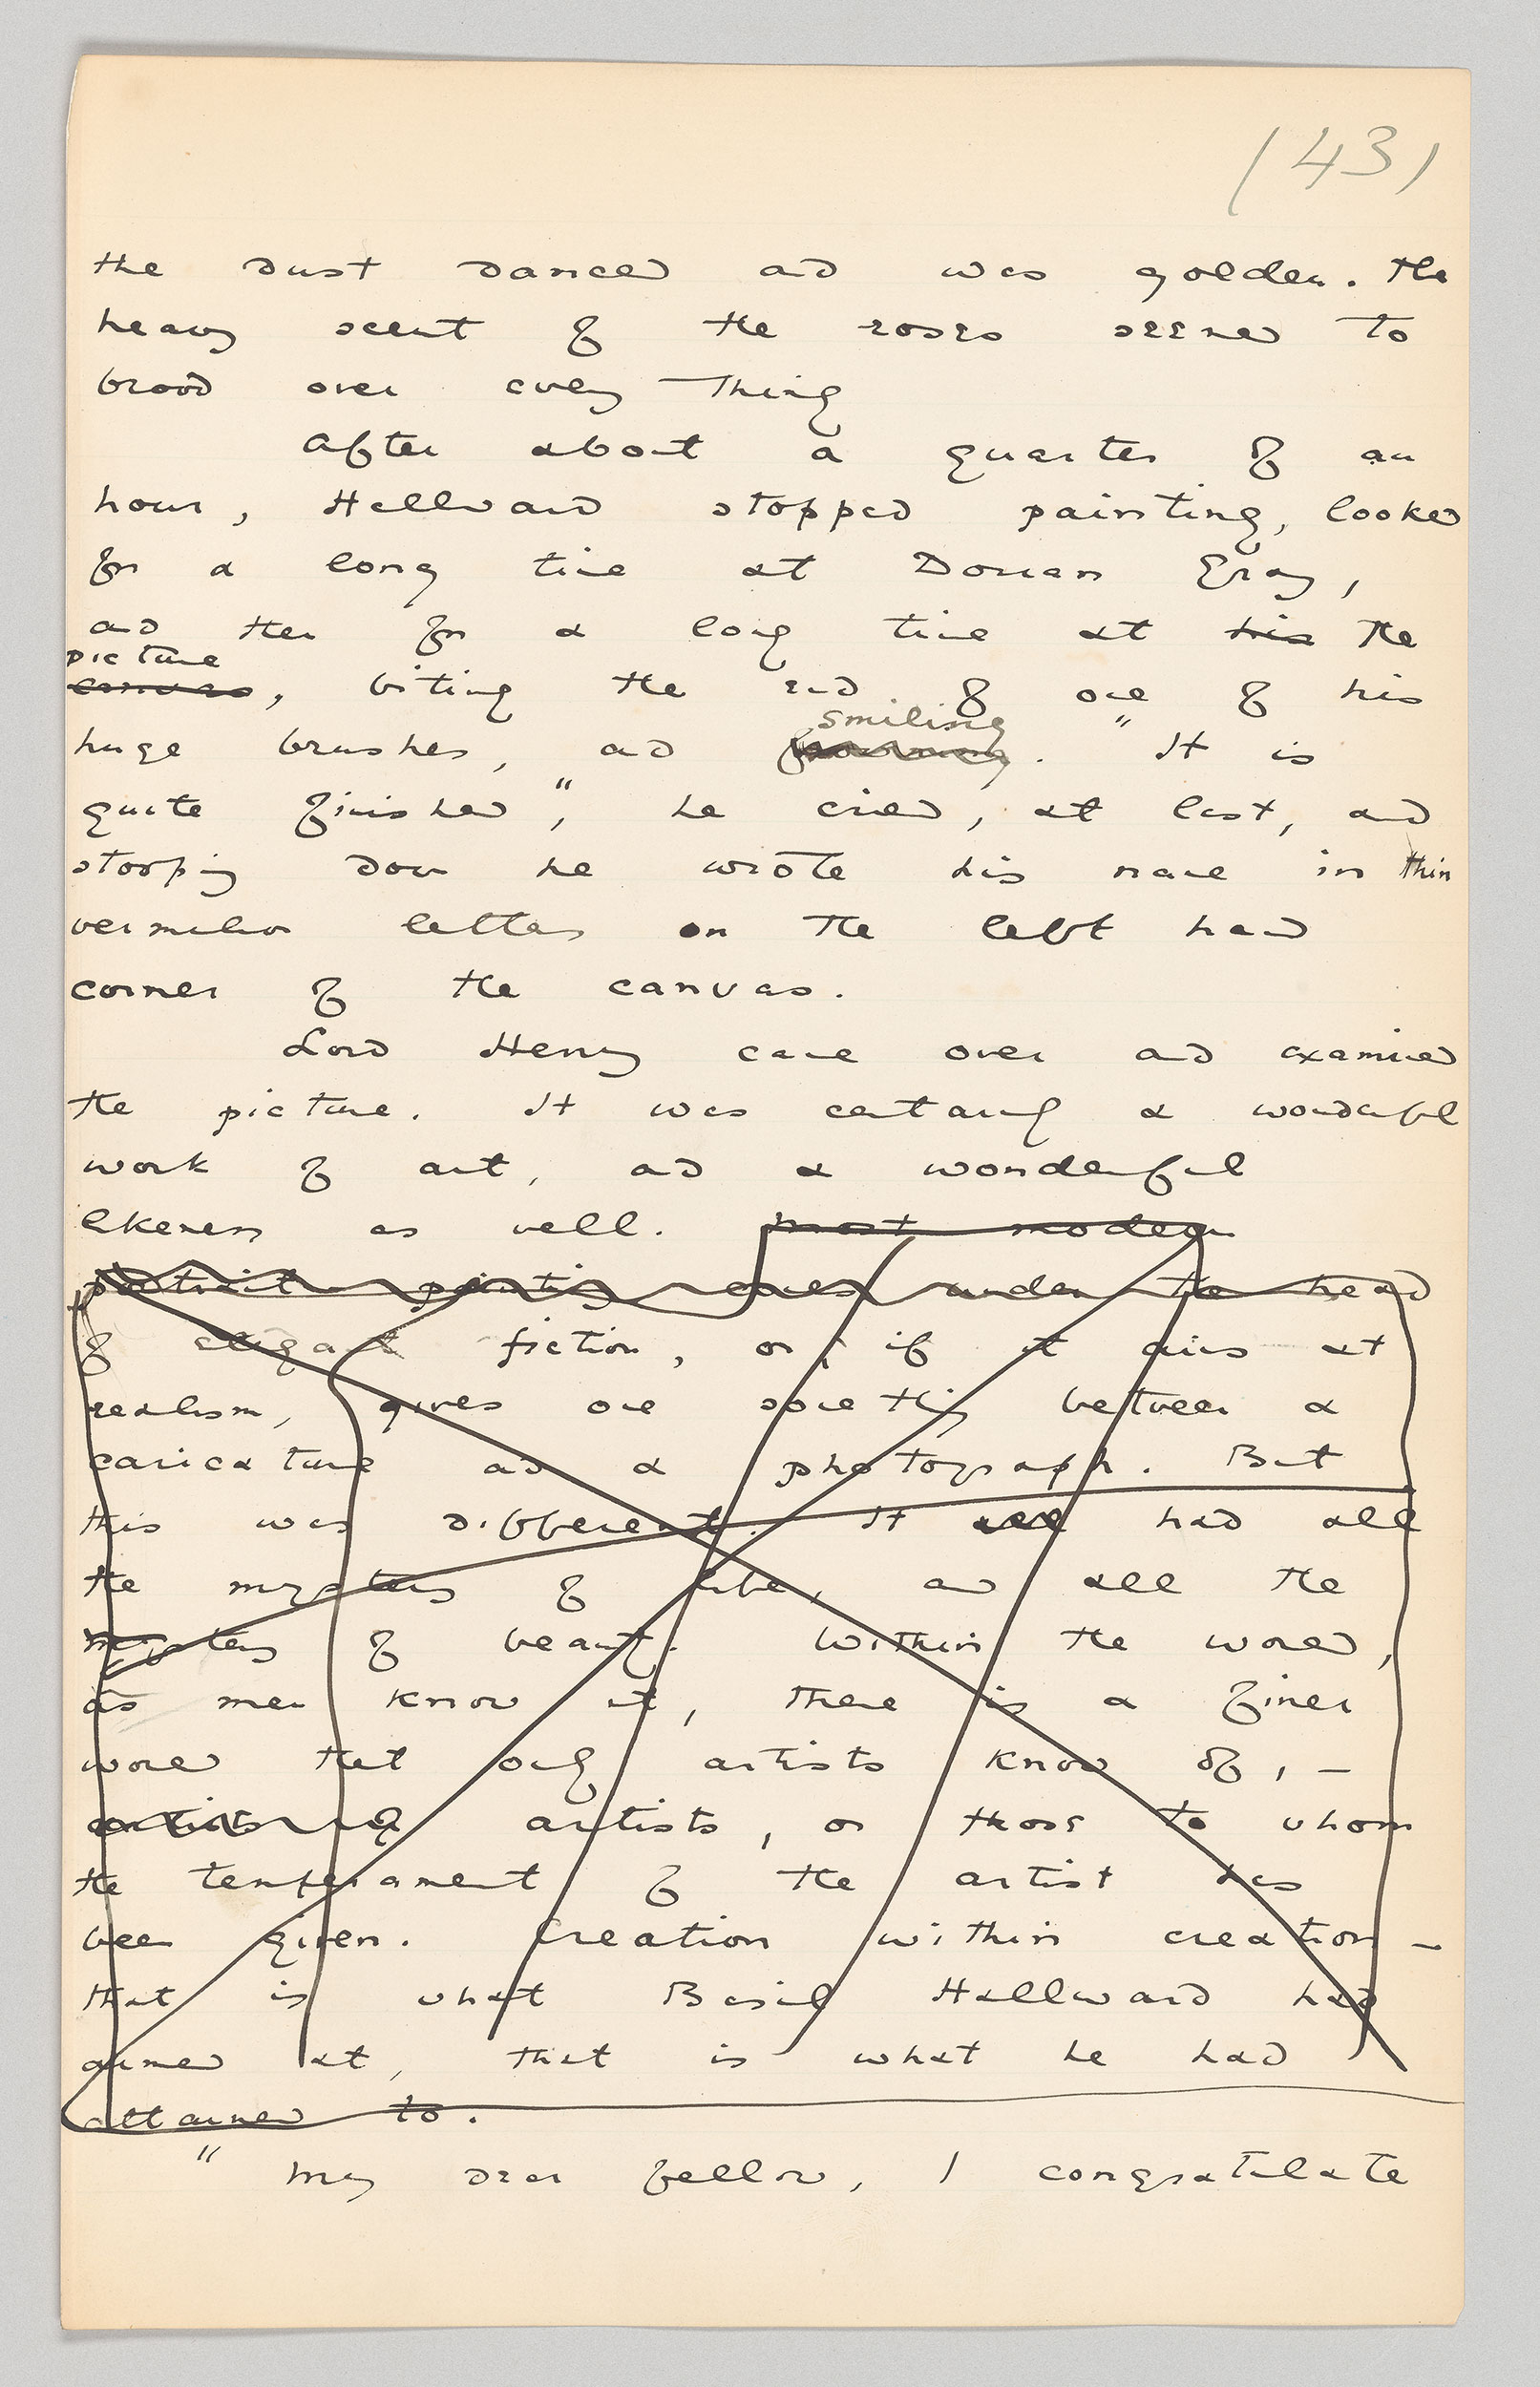 (43)
the dust danced and was golden. The
heavy scent of the roses seemed to
brood over every thing
After about a quarter of an
hour, Hallward stopped painting, looked
for a long time at Dorian Gray,
and then for a long time at his the
picture
canvas, biting the end of one of his
smiling
huge brushes, and frowning. "It is
quite finished", he cried, at last, and
stooping down he wrote his name in thin
vermilion letters on the left hand
corner of the canvas.
Lord Henry came over and examined
the picture. It was certainly a wonderful
work of art, and a wonderful
likeness as well. Most modern
portrait painting comes under the head
of elegant fiction, or, if it aims at
realism, gives one something between a
caricature and a photograph. But
this was different. It had all
the mystery of life, and all the
mystery of beauty. Within the world,
as men know it, there is a finer
world that only artists know of, –
artists artists, or those to whom
the temperament of the artist has
been given. Creation within creation –
that is what Basil Hallward had
aimed at, that is what he had
attained to.
"My dear fellow, I congratulate